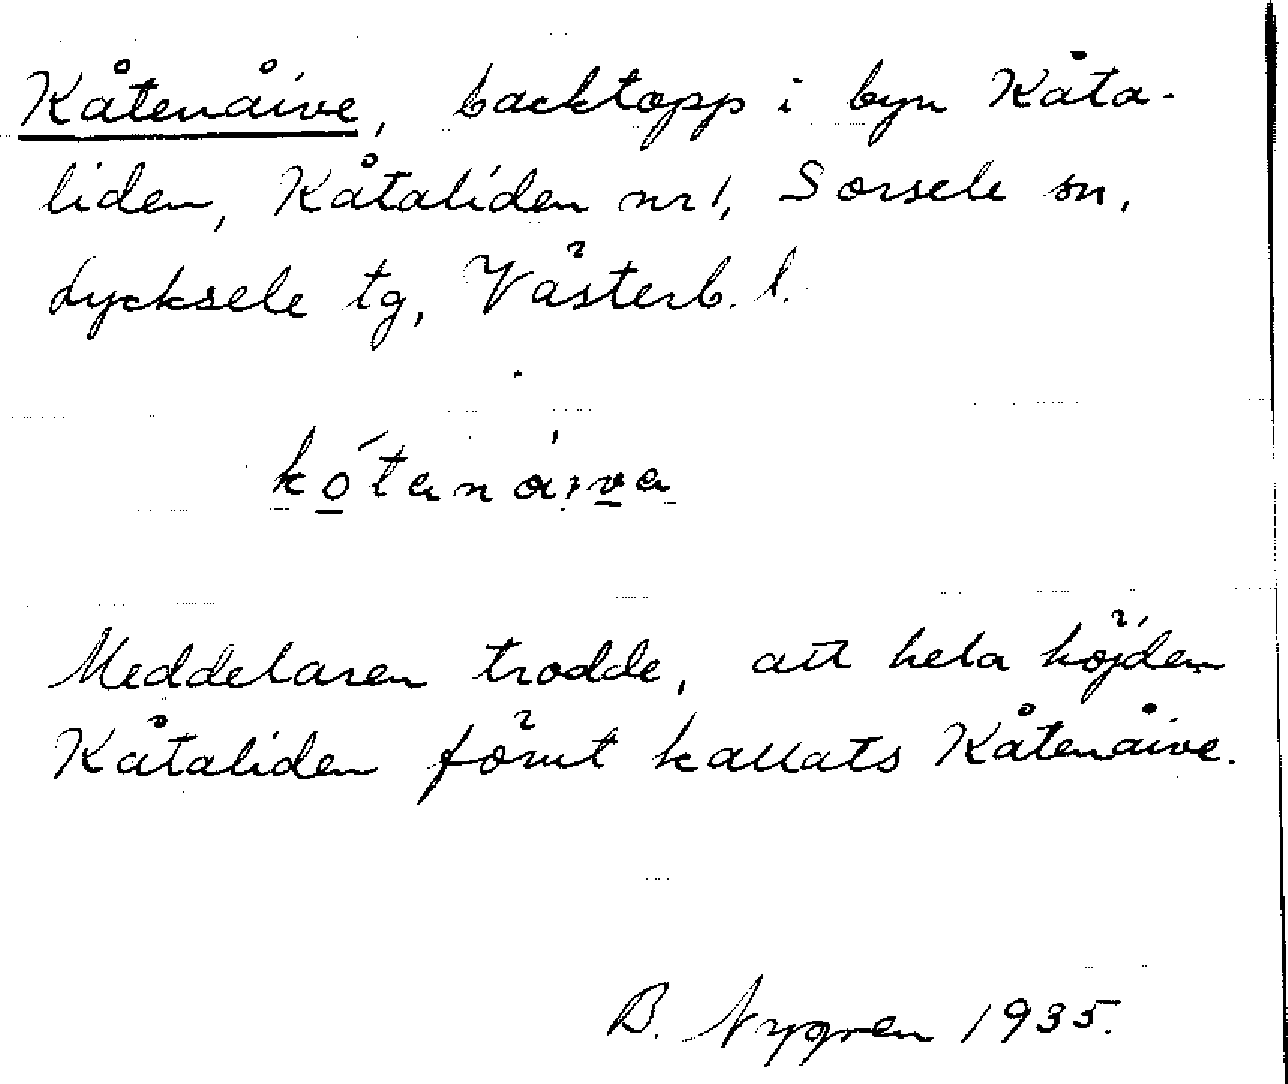 Kåtenåive, backtopp i byn Kåta-
liden, Kåtaliden nr 1, Sorsele sn,
Lycksele tg, Västerb. l.
kó̲tanái̯va
Meddelaren trodde, att hela höjden
Kåtaliden förut kallats Kåtenåive.
B. Nygren 1935.